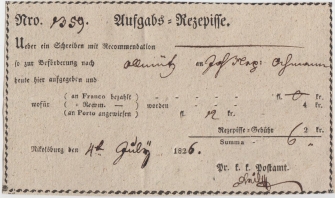 Nro. 1359. Aufgabs-Rezepisse.
Ueber ein Schreiben mit Recommendation
so zur Beförderung nach Ollmütz an Joh Nep:
heute hier aufgegeben und
( an Franco bezahlt fl. kr.
wofür ( „ Recom. — worden 4 kr.
( an Porto angewiesen fl. 12 kr.
Rezepisse-Gebühr 2 kr.
Summa 6 „
Nikolsburg den 4t July 1826.
Pr. k. k. Postamt.